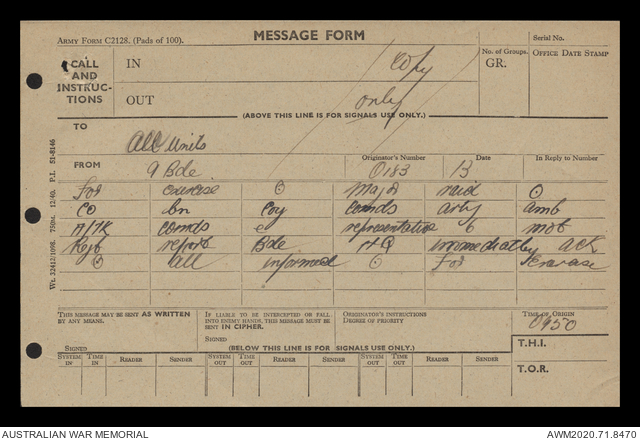 ARMY FORM C2128. (Pads of 100).
MESSAGE FORM
Serial No.
CALL AND INSTRUC-TIONS
IN
Copy
No. of Groups. GR.
OFFICE DATE STAMP
OUT
only
(ABOVE THIS LINE IS FOR SIGNALS USE ONLY.)
TO
All units
FROM
9 Bde
Originator's Number
0183
Date
13
In Reply to Number
for exercise ⊙ Major raid ⊙
CO bn Coy comds arty amb
A/TK comds representative 6 mob
report Bde HQ immediately ACK
⊙ all informed ⊙ For Exercise
Wt. 32412/1098. 750M. 12/40. P.I. 51-8146
THIS MESSAGE MAY BE SENT AS WRITTEN BY ANY MEANS.
SIGNED
IF LIABLE TO BE INTERCEPTED OR FALL INTO ENEMY HANDS, THIS MESSAGE MUST BE SENT IN CIPHER.
SIGNED
ORIGINATOR'S INSTRUCTIONS DEGREE OF PRIORITY
TIME OF ORIGIN
0950
(BELOW THIS LINE IS FOR SIGNALS USE ONLY.)
T.H.I.
SYSTEM IN TIME IN READER SENDER SYSTEM OUT TIME OUT READER SENDER SYSTEM OUT TIME OUT READER SENDER
T.O.R.
AUSTRALIAN WAR MEMORIAL
AWM2020.71.8470